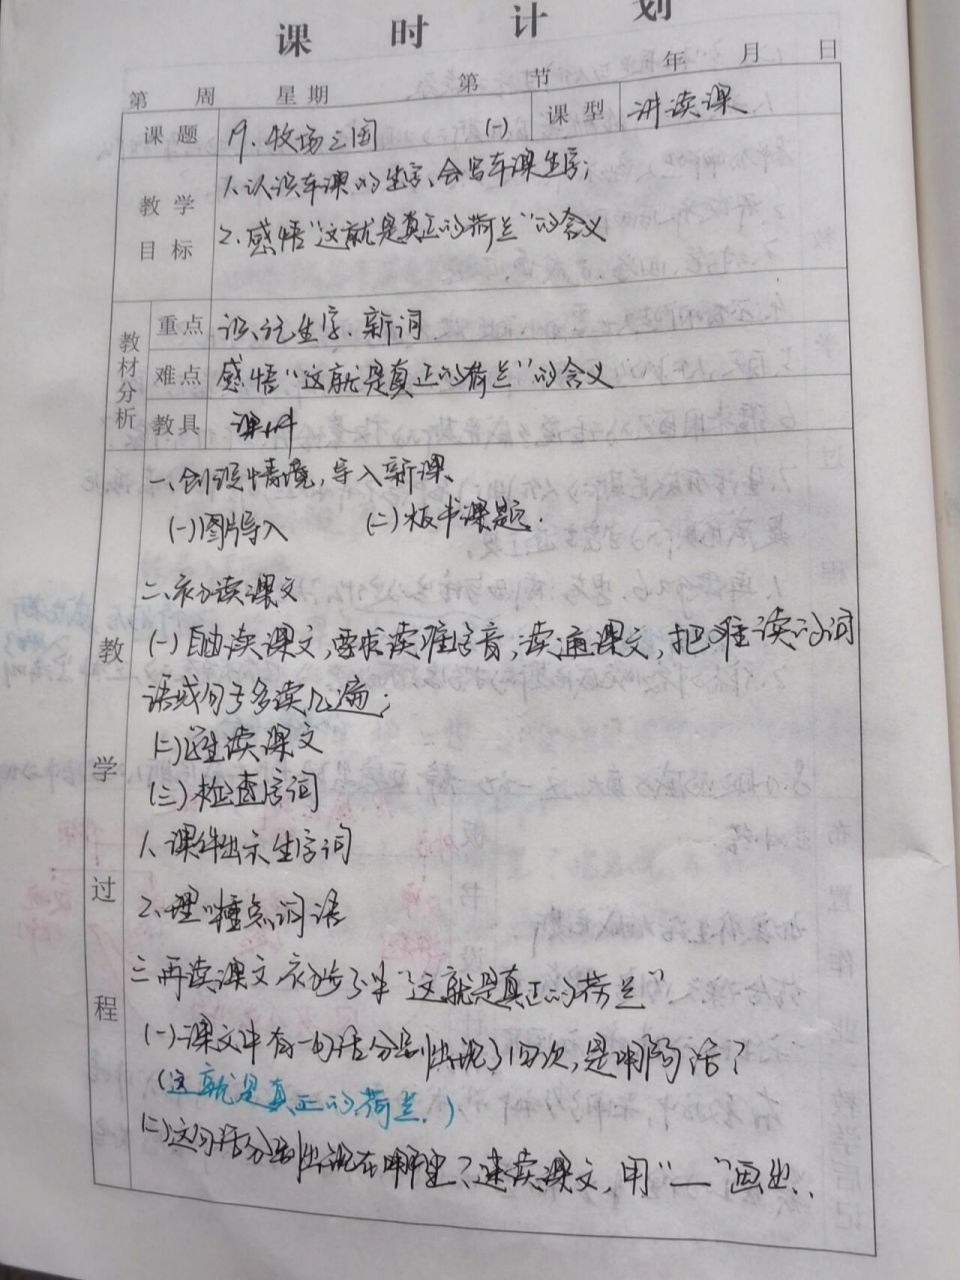 课时计划
第 周 星期 第 节 年 月 日
课题 19、牧场之国 (一) 课型 讲读课
教学目标 1、认识本课的生字、会写本课生字；
2、感悟“这就是真正的荷兰”的含义
教材分析 重点 识记生字、新词
难点 感悟“这就是真正的荷兰”的含义
教具 课件
教学过程
一、创设情境，导入新课、
(一)图片导入 (二)板书课题.
二、初读课文
(一)自由读课文，要求读准字音，读通课文，把难读的词
语或句子多读几遍；
(二)指生读课文
(三)检查字词
1、课件出示生字词
2、理解重点词语
三、再读课文，初步了解“这就是真正的荷兰”
(一)课文中有一句话分别出现了四次，是哪句话？
(这就是真正的荷兰.)
(二)这句话分别出现在哪里？速读课文，用“—”画出.